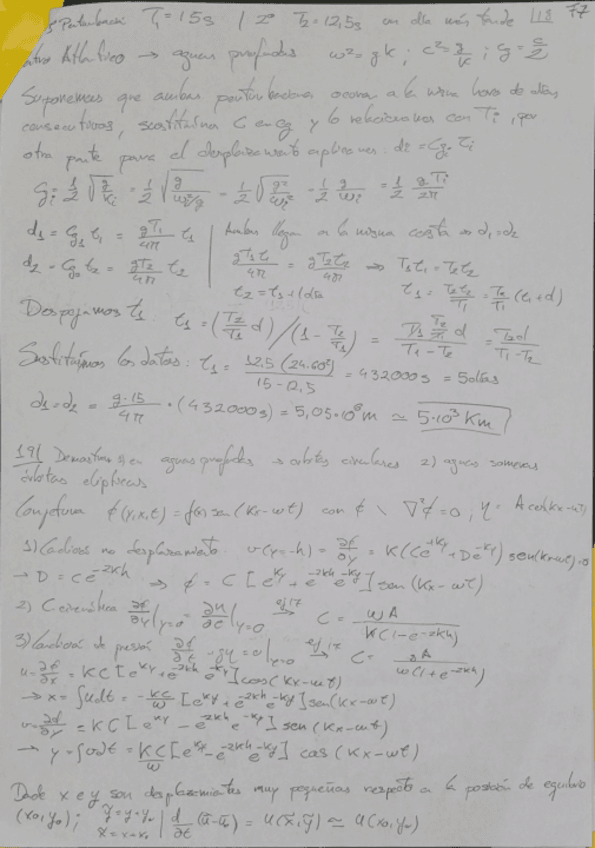 Perturbación T₁ = 15s / 2º T₂ = 12,5s un día más tarde |18 77
Atlántico → aguas profundas ω² = gk ; c² = g/k ; Cg = c/2
Suponemos que ambas perturbaciones ocurren a la misma hora de días
consecutivos, sustituimos C en Cg y lo relacionamos con Ti, por
otra parte para el desplazamiento aplicamos: di = Cgi ti
Cgi = 1/2 √(g/ki) = 1/2 √(g/(ωi²/g)) = 1/2 √(g²/ωi²) = 1/2 g/ωi = 1/2 gTi/2π
d₁ = Cg₁ t₁ = gT₁/4π t₁ | Ambas llegan a la misma costa ⇒ d₁=d₂
d₂ = Cg₂ t₂ = gT₂/4π t₂ | gT₁t₁/4π = gT₂t₂/4π ⇒ T₁t₁ = T₂t₂
t₂ = t₁ + 1día t₁ = T₂t₂/T₁ = T₂/T₁ (t₁+d)
Despejamos t₁ t₁ = (T₂/T₁ d) / (1 - T₂/T₁) = (T₁ T₂/T₁ d)/(T₁-T₂) = T₂d/(T₁-T₂)
Sustituimos los datos: t₁ = 12,5 (24·60²)/(15-12,5) = 432000s = 5días
d₁=d₂ = g·15/4π · (432000s) = 5,05·10⁶m ≃ 5·10³ Km
19| Demostrar 1) en aguas profundas → órbitas circulares 2) aguas someras
órbitas elípticas
Conjetura ϕ(y,x,t) = f(y) sen(Kx-ωt) con ϕ \ ∇²ϕ=0 , η = A cos(kx-ωt)
1) Cond no desplazamiento. v(y=-h) = ∂ϕ/∂y = K(Ce^{-Ky} + De^{-Ky}) sen(kx-ωt)=0
→ D = Ce^{-2Kh} ⇒ ϕ = C [e^{Ky} + e^{-2Kh} e^{-Ky}] sen(Kx-ωt)
2) C cinemática ∂ϕ/∂y|y=0 = ∂η/∂t|y=0 → ej 17 C = ωA/(K(1-e^{-2Kh}))
3) Condición de presión ∂ϕ/∂t + gη = 0|y=0 → ej 17 C = gA/(ω(1+e^{-2Kh}))
u = ∂ϕ/∂x = KC [e^{Ky} + e^{-2Kh} e^{-Ky}] cos(Kx-ωt)
→ x = ∫udt = -KC/ω [e^{Ky} + e^{-2Kh} e^{-Ky}] sen(Kx-ωt)
v = ∂ϕ/∂y = KC [e^{Ky} - e^{-2Kh} e^{-Ky}] sen(Kx-ωt)
→ y = ∫vdt = KC/ω [e^{Ky} - e^{-2Kh} e^{-Ky}] cos(Kx-ωt)
Dado x e y son desplazamientos muy pequeños respecto a la posición de equilibrio
(x₀,y₀);